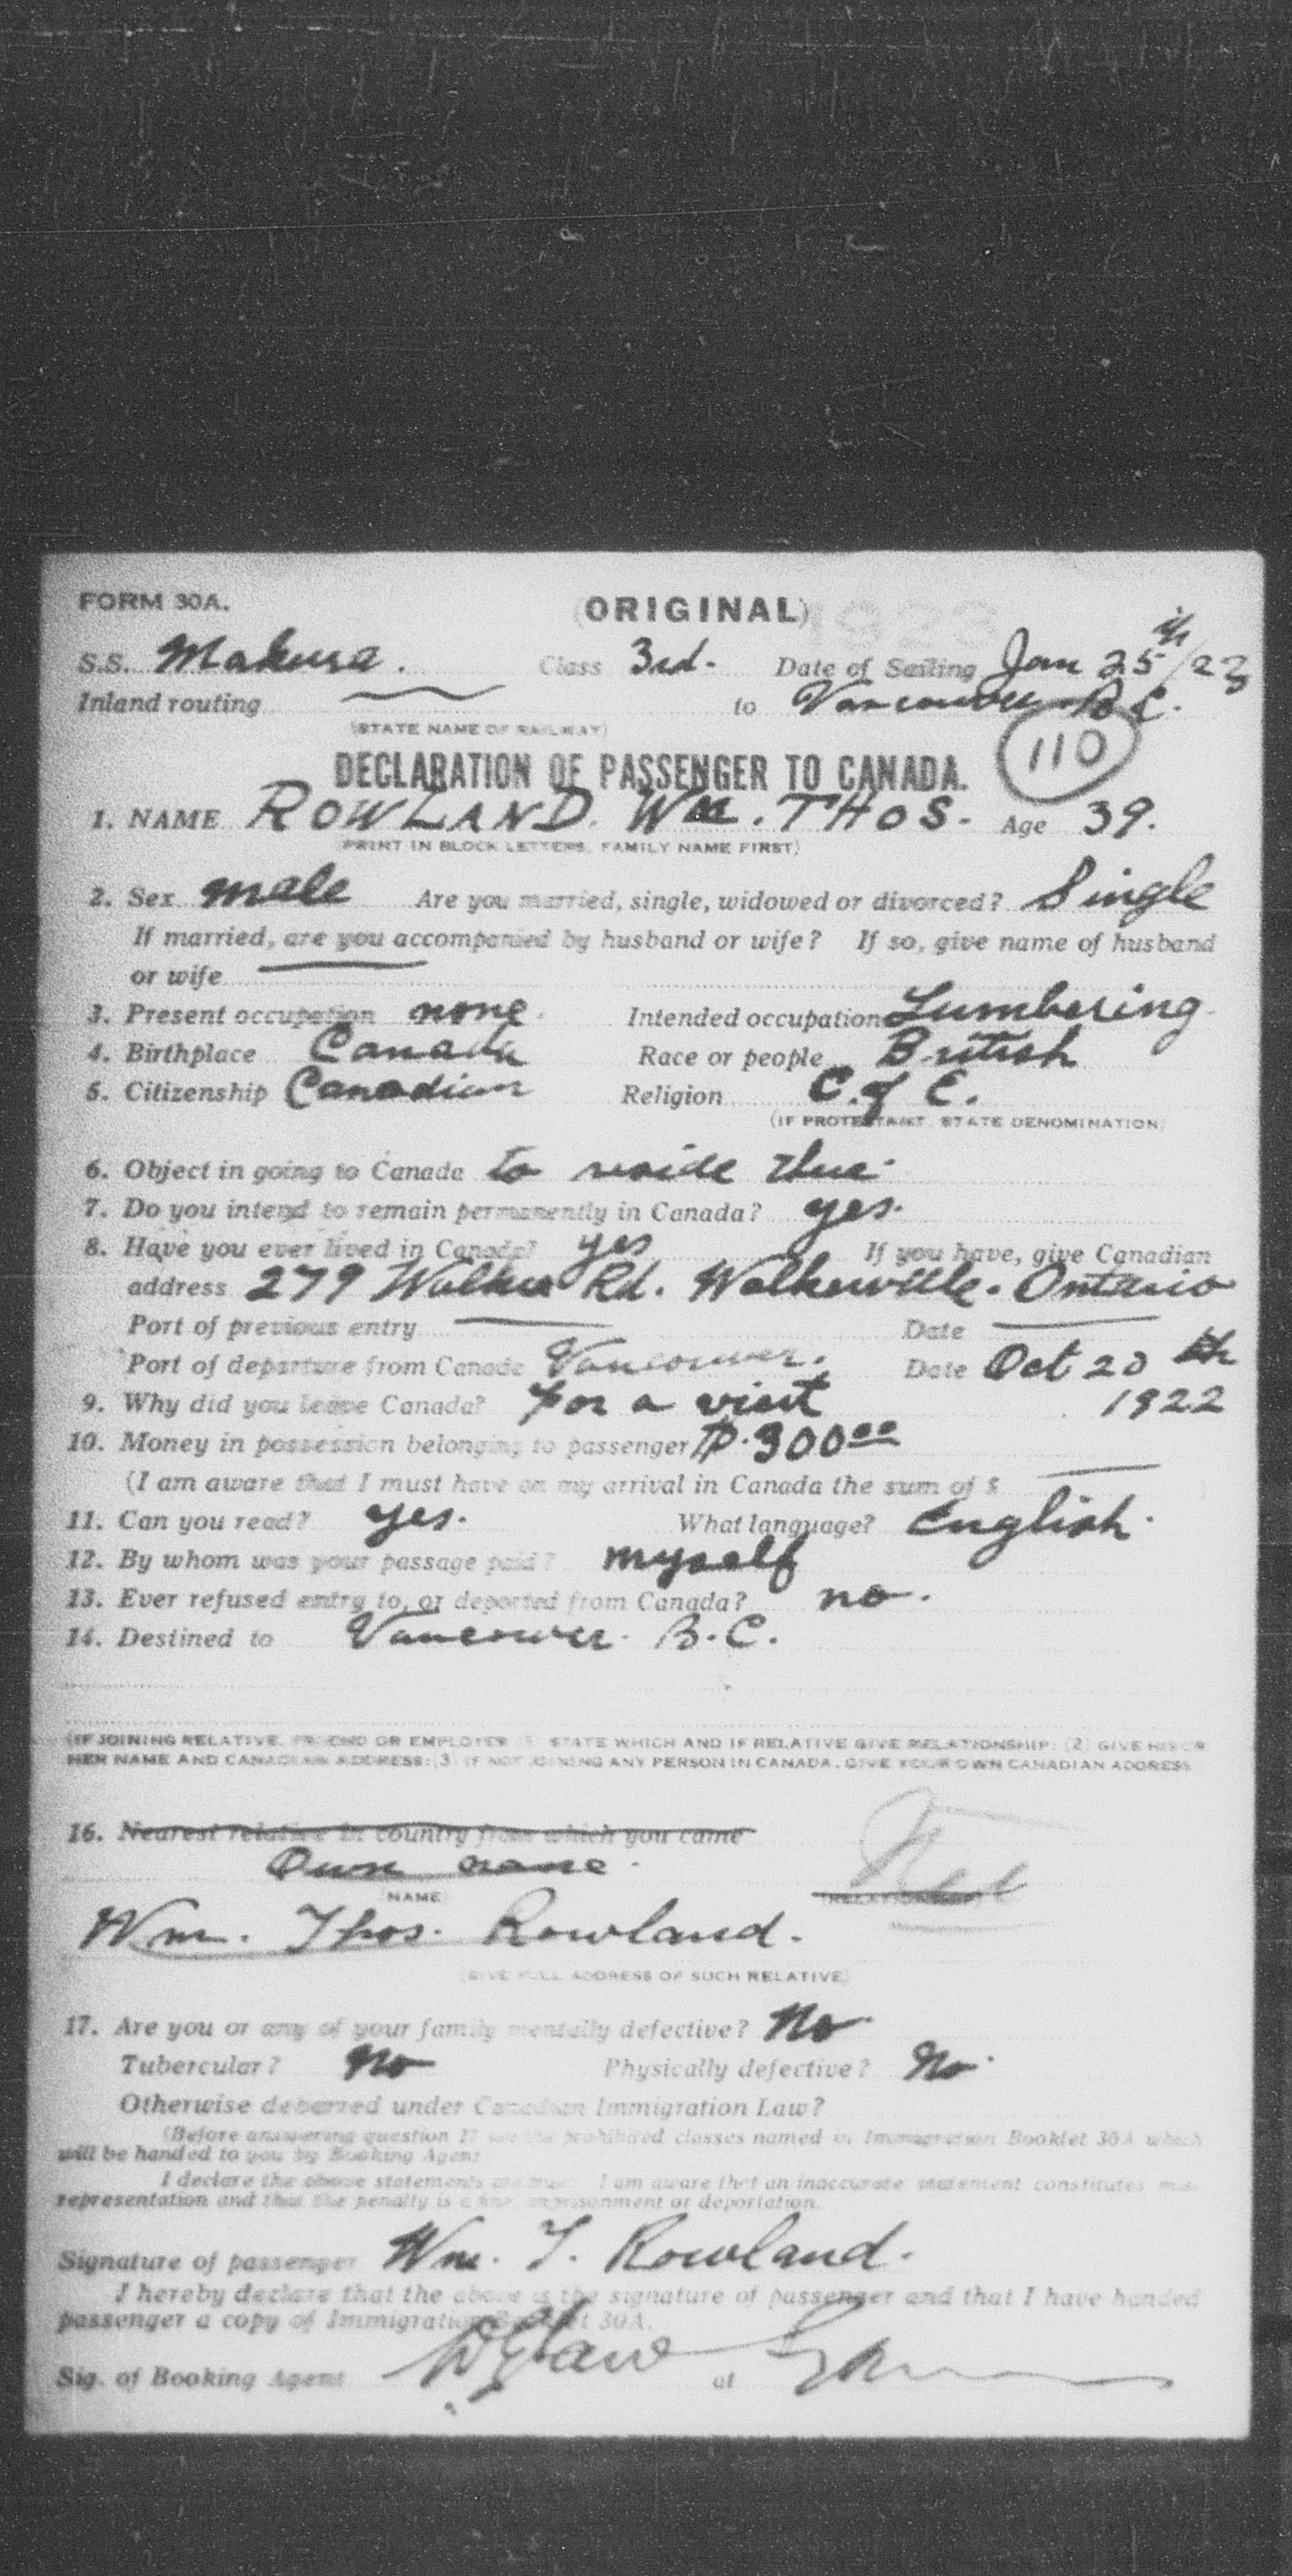 FORM 30A. (ORIGINAL)
S.S. Makura. Class 3rd. Date of Sailing Jan 25th/23
Inland routing to Vancouver B.C.
(STATE NAME OF RAILWAY)
110
DECLARATION OF PASSENGER TO CANADA.
1. NAME ROWLAND. Wm. THOS. Age 39.
(PRINT IN BLOCK LETTERS, FAMILY NAME FIRST)
2. Sex male Are you married, single, widowed or divorced? Single
If married, are you accompanied by husband or wife? If so, give name of husband
or wife
3. Present occupation none. Intended occupation Lumbering.
4. Birthplace Canada Race or people British
5. Citizenship Canadian Religion C. of E.
(IF PROTESTANT, STATE DENOMINATION)
6. Object in going to Canada to reside there.
7. Do you intend to remain permanently in Canada? yes.
8. Have you ever lived in Canada? yes If you have, give Canadian
address 279 Walker Rd. Walkerville. Ontario
Port of previous entry Date
Port of departure from Canada Vancouver. Date Oct 20th
9. Why did you leave Canada? for a visit 1922
10. Money in possession belonging to passenger $.300.00
(I am aware that I must have on my arrival in Canada the sum of $
11. Can you read? yes. What language? English.
12. By whom was your passage paid? myself
13. Ever refused entry to, or deported from Canada? no.
14. Destined to Vancouver. B.C.
(IF JOINING RELATIVE, FRIEND OR EMPLOYER (1) STATE WHICH AND IF RELATIVE GIVE RELATIONSHIP: (2) GIVE HIS OR
HER NAME AND CANADIAN ADDRESS: (3) IF NOT JOINING ANY PERSON IN CANADA, GIVE YOUR OWN CANADIAN ADDRESS
16. Nearest relative in country from which you came
Own name.
NAME (RELATIONSHIP)
Wm. Thos. Rowland.
(GIVE FULL ADDRESS OF SUCH RELATIVE)
17. Are you or any of your family mentally defective? No
Tubercular? No Physically defective? No.
Otherwise debarred under Canadian Immigration Law?
(Before answering question 17 see the prohibited classes named in Immigration Booklet 30A which
will be handed to you by Booking Agent
I declare the above statements are true. I am aware that an inaccurate statement constitutes mis-
representation and that the penalty is a fine, imprisonment or deportation.
Signature of passenger Wm. T. Rowland.
I hereby declare that the above is the signature of passenger and that I have handed
passenger a copy of Immigration Booklet 30A.
Sig. of Booking Agent at